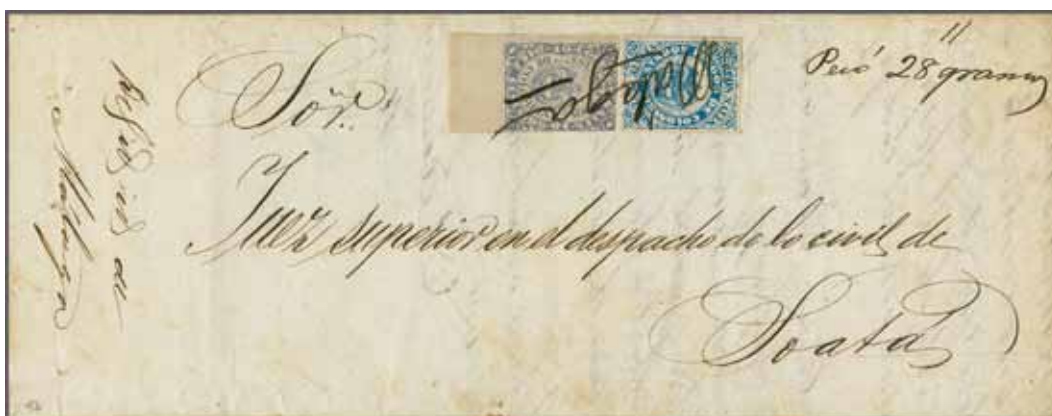 Pesó 28 gramos
Málaga
Sōr.
Juez superior en el despacho de lo civil de
Soatá
Málaga